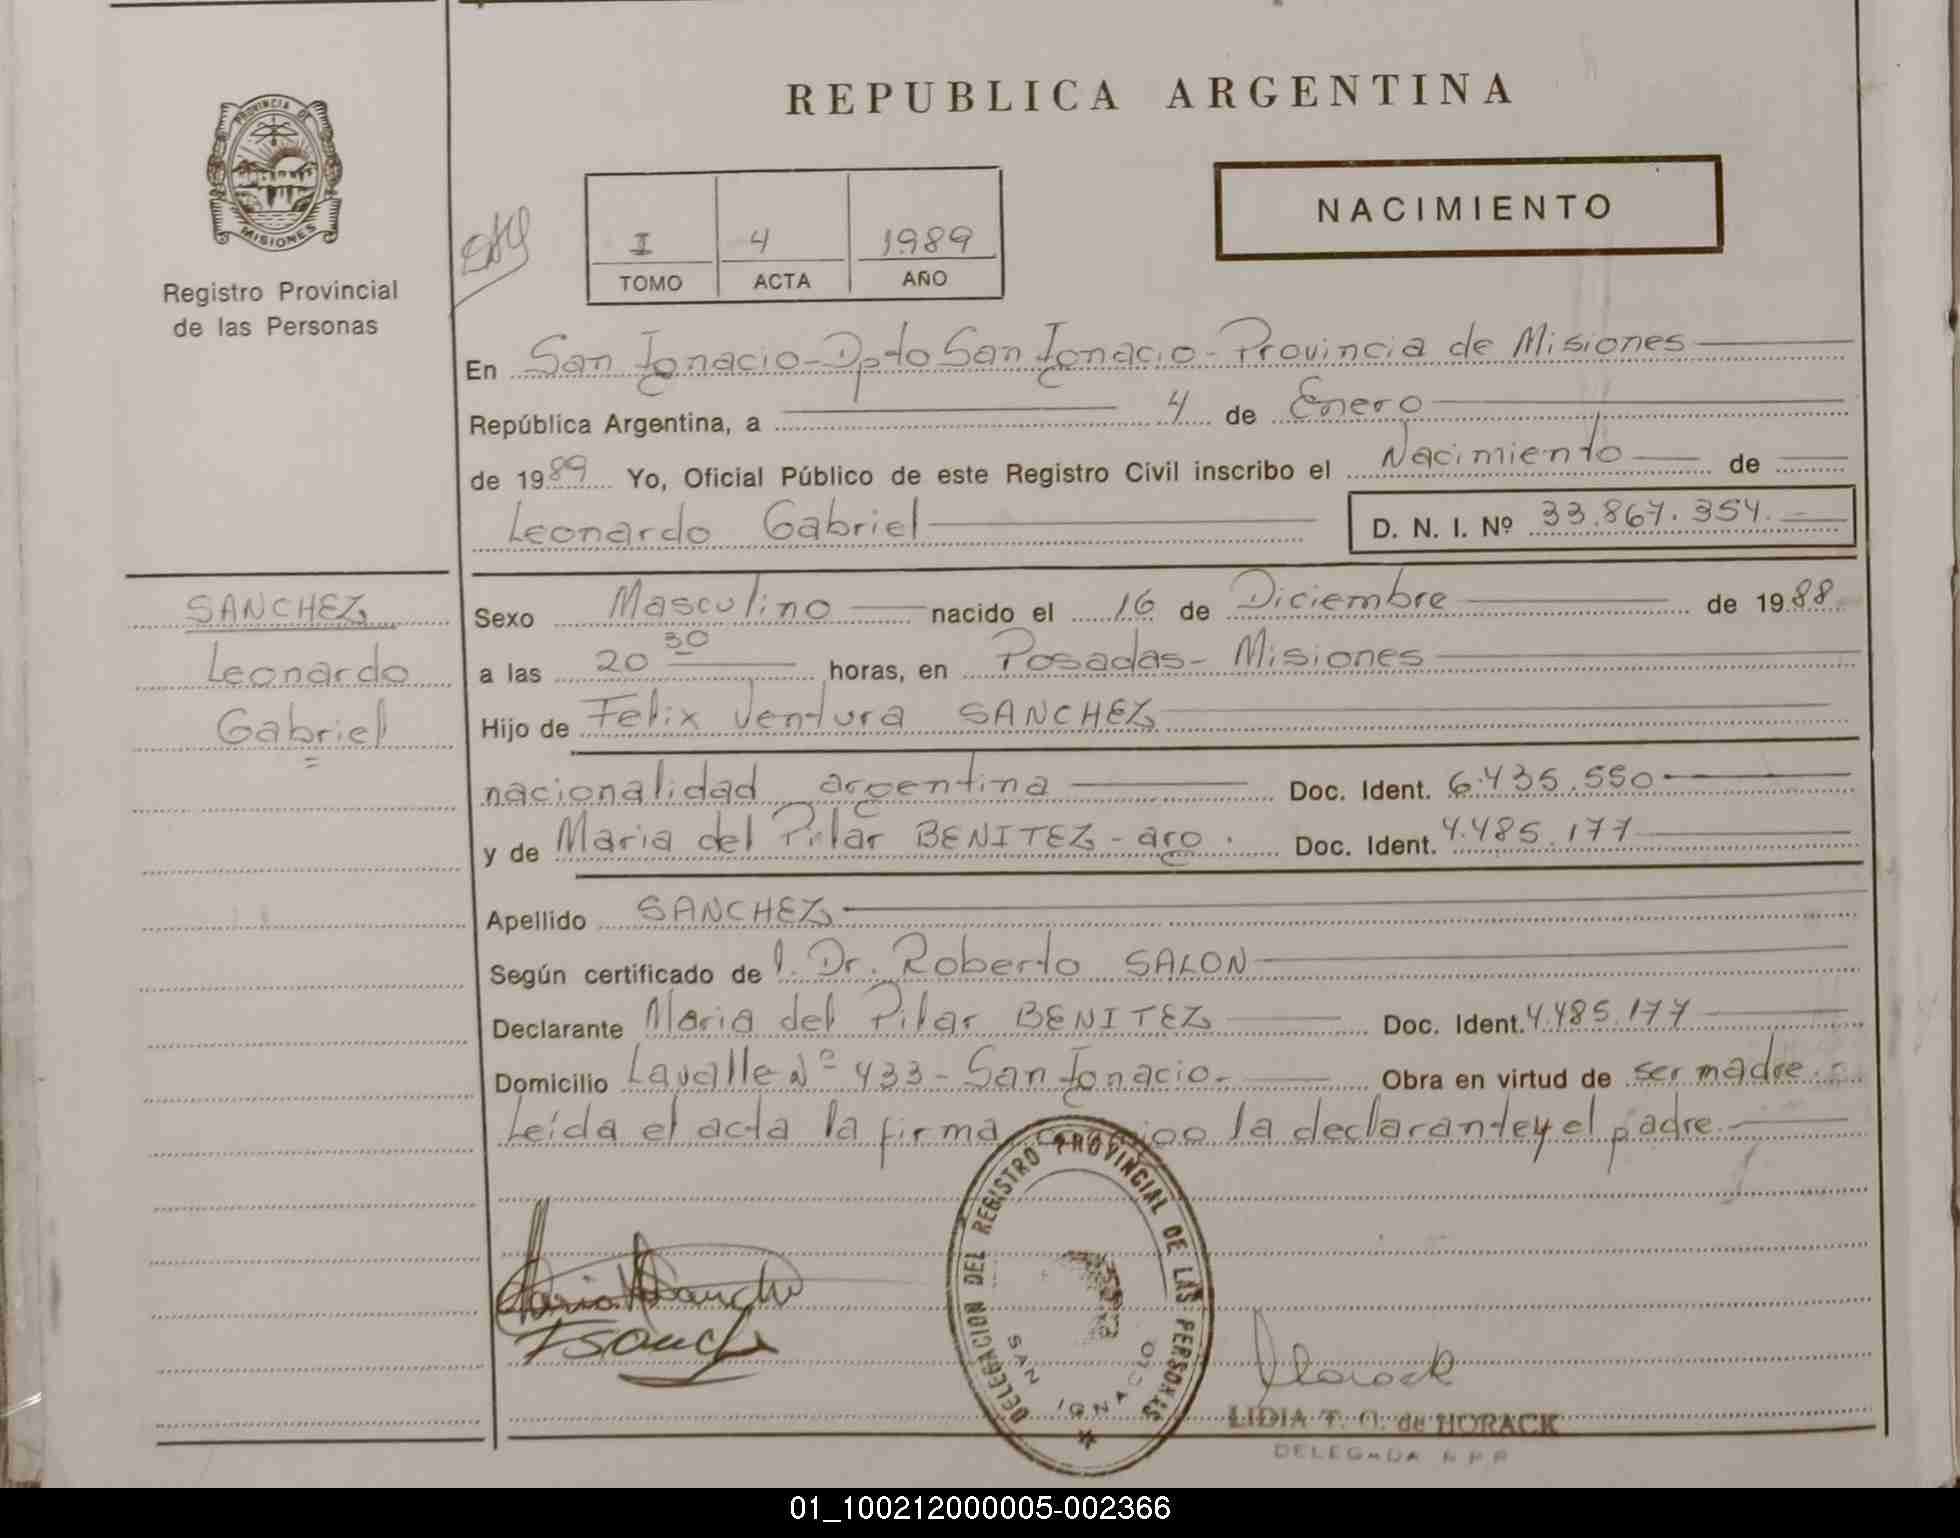 PROVINCIA DE
MISIONES
Registro Provincial
de las Personas
SANCHEZ
Leonardo
Gabriel
REPUBLICA ARGENTINA
I 4 1989
TOMO ACTA AÑO
NACIMIENTO
En San Ignacio-Dpto San Ignacio-Provincia de Misiones
República Argentina, a 4 de Enero
de 1989 Yo, Oficial Público de este Registro Civil inscribo el Nacimiento de
Leonardo Gabriel D. N. I. Nº 33.867.354.
Sexo Masculino nacido el 16 de Diciembre de 1988
a las 20 30 horas, en Posadas-Misiones
Hijo de Felix Ventura SANCHEZ
nacionalidad argentina Doc. Ident. 6.435.550
y de Maria del Pilar BENITEZ-arg. Doc. Ident. 4.485.177
Apellido SANCHEZ
Según certificado de l. Dr. Roberto SALON
Declarante Maria del Pilar BENITEZ Doc. Ident. 4.485.177
Domicilio Lavalle Nº 433-San Ignacio- Obra en virtud de ser madre.
Leída el acta la firma la declarante y el padre.
DELEGACION DEL REGISTRO PROVINCIAL DE LAS PERSONAS
SAN IGNACIO
FSanch
LIDIA T. O. de HORACK
DELEGADA R P P
01_100212000005-002366